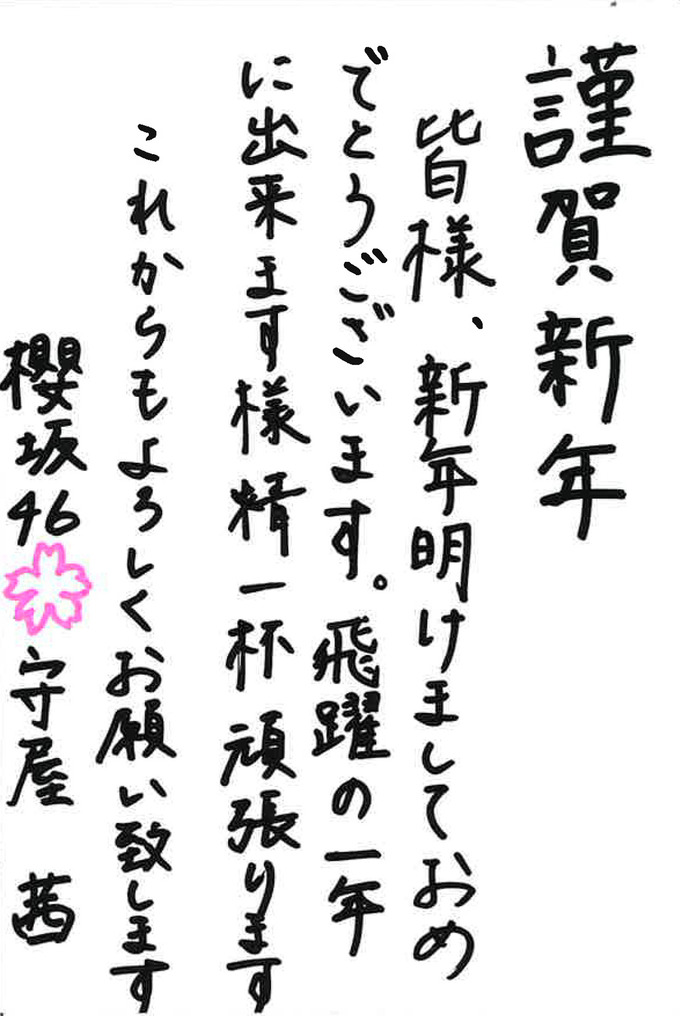 謹賀新年
皆様、新年明けましておめ
でとうございます。飛躍の一年
に出来ます様精一杯頑張ります
これからもよろしくお願い致します
櫻坂46守屋 茜